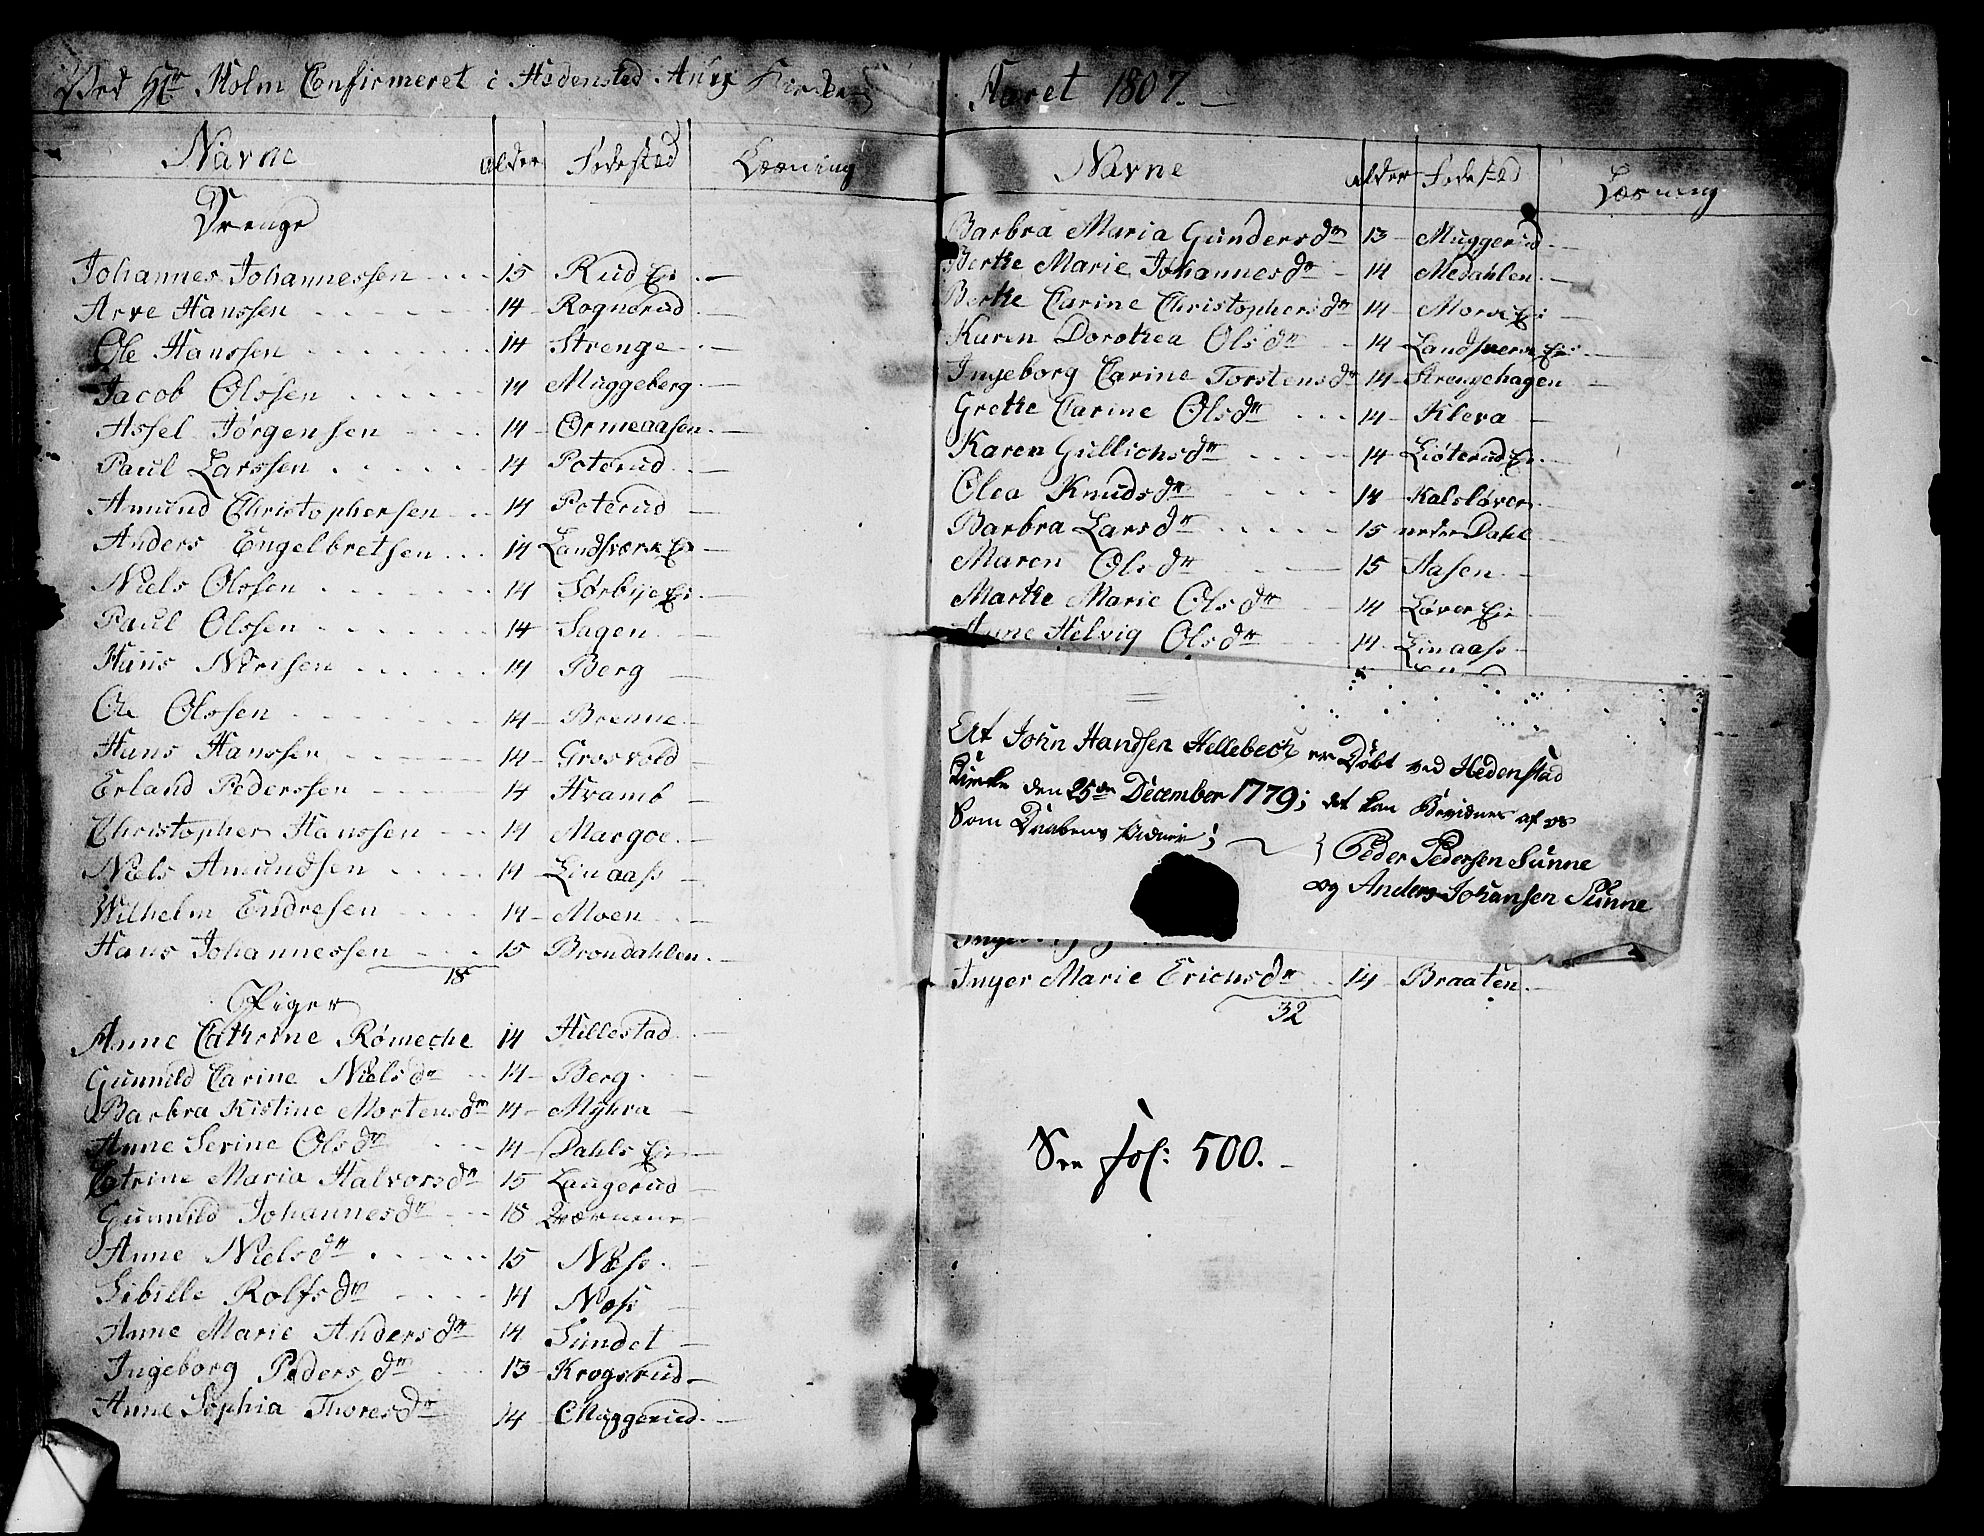 Ved Hr Holm Confirmeret i Hedensted Anex Kirke
Navne alder Fødested Læsning
Drenge
Johannes Johannessen 15 Rud Ei
Arve Hanssen 14 Rognerud
Ole Hanssen 14 Strenge
Jacob Olssen 14 Muggeberg
Assel Jørgensen 14 Ormeaasen
Paul Larssen 14 Poterud
Amund Christophersen 14 Poterud
Anders Engelbretsen 14 Landsværk Ei
Niels Olssen 14 Sørbye Ei
Paul Olssen 14 Sagen
Hans 14 Berg
Ole Olssen 14 Brenne
Hans Hanssen 14 Grosvold
Erland Pederssen 14 Hvamb
Christopher Hanssen 14 Margoe
Niels Amundsen 14 Linaass
Wilhelm Endresen 14 Moen
Hans Johannessen 15 Brondahlen
18
Piger
Anne Cathrine Rømeche 14 Hillestad
Gunnild Carine Nielsdr 14 Berg
Barbra Kistine Mortensdr 14 Myhra
Anne Serine Olsdr 14 Dahls Ei
Maria Halvorsdr 15 Laugerud
Gunnild Johannesdr 18
Anne Nielsdr 15 Næss
Sibille Rolfsdr 14 Næss
Anne Marie Andersdr 14 Sundet
Ingeborg Pedersdr 13 Krogsrud
Anne Sophia Thoresdr 14 Muggerud
Aaret 1807.
Navne alder Fødested Læsning
Barbra Maria Gundersdr 13 Muggerud
Berthe Marie Johannesdr 14 Medahlen
Berthe Carine Christophersdr 14 Morve Ei
Karen Dorothea Olsdr 14 Landsverk Ei
Ingeborg Carine Torstensdr 14 Strengehagen
Grethe Carine Olsdr 14 Kleva
Karen Gullichsdr 14 Liøterud Ei
Olea Knudsdr 14 Kalsløver
Barbra Larsdr 15 neder Dahl
Maren Olsdr 15 Aasen
Marthe Marie Olsdr 14 Løver Ei
Anne Helvig Olsdr 14 Linaass
At John Handsen Hellebech er Døbt ved Hedenstad
Kirke den 25de December 1779; det kan Bevidnes af os
Som Daabens Vidner;
Peder Pedersen Sunne
og Anders Johansen Sunne
Inger Marie Erichsdr 14 Braaten
32
See fol: 500.